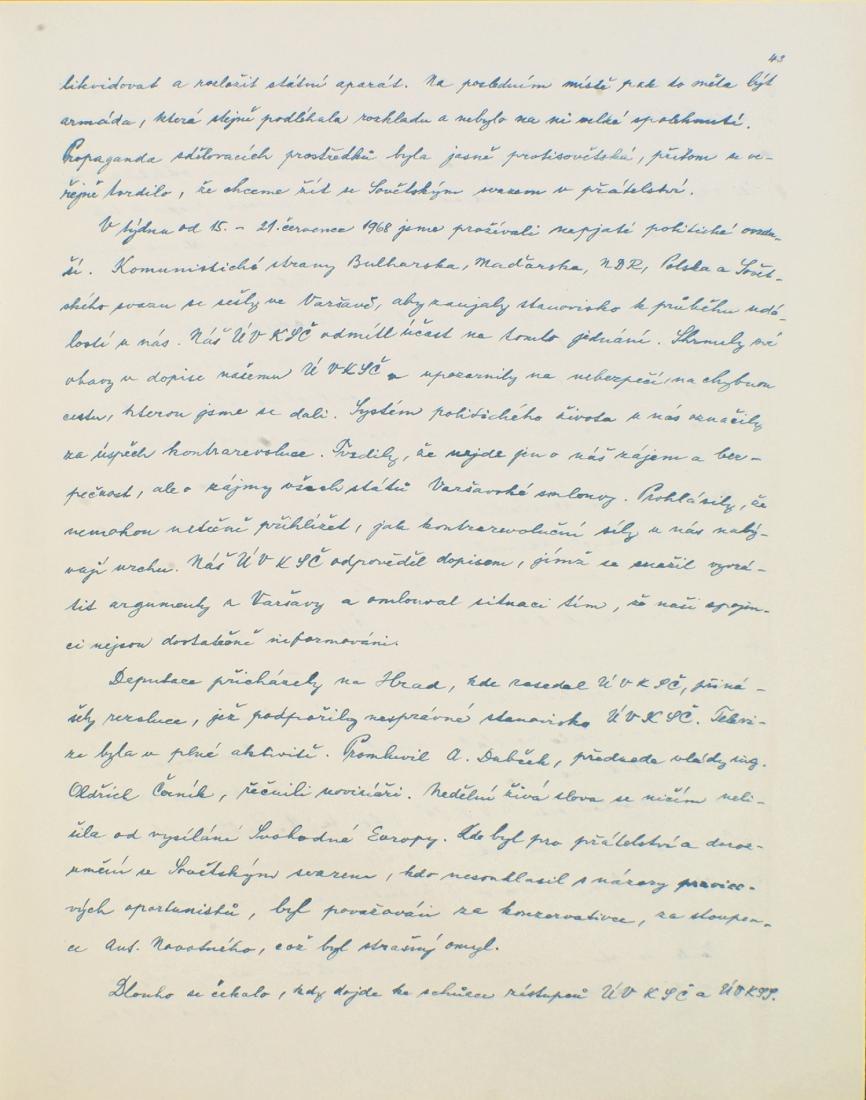 43
likvidovat a rozložit státní aparát. Na posledním místě pak to měla být
armáda, která stejně podléhala rozkladu a nebylo na ni velké spolehnutí.
Propaganda sdělovacích prostředků byla jasně protisovětská, přitom se ve-
řejně tvrdilo, že chceme žít se Sovětským svazem v přátelství.
V týdnu od 15. - 21. července 1968 jsme prožívali napjaté politické ovzdu-
ší. Komunistické strany Bulharska, Maďarska, NDR, Polska a Sovět-
ského svazu se sešly ve Varšavě, aby zaujaly stanovisko k průběhu udá-
lostí u nás. Náš ÚV KSČ odmítl účast na tomto jednání. Shrnuly své
obavy v dopise našemu ÚVKSČ a upozornily na nebezpečí, na chybnou
cestu, kterou jsme se dali. Systém politického života u nás označily
za úspěch kontrarevoluce. Tvrdily, že nejde jen o náš zájem a bez-
pečnost, ale o zájmy všech států Varšavské smlouvy. Prohlásily, že
nemohou netečně přihlížet, jak kontrarevoluční síly u nás nabý-
vají vrchu. Náš ÚV KSČ odpověděl dopisem, jímž se snažil vyvrá-
tit argumenty z Varšavy a omlouval situaci tím, že naši spojen-
ci nejsou dostatečně informováni.
Deputace přicházely na Hrad, kde zasedal ÚV KSČ, přiná-
šely rezoluce, jež podpořily nesprávné stanovisko ÚVKSČ. Televi-
ze byla v plné aktivitě. Promluvil A. Dubček, předseda vlády ing.
Oldřich Černík, řečnili novináři. Nedělní živá slova se ničím neli-
šila od vysílání Svobodné Evropy. Kdo byl pro přátelství a doroz-
umění se Sovětským svazem, kdo nesouhlasil s názory pravico-
vých oportunistů, byl považován za konzervativce, za stoupen-
ce Ant. Novotného, což byl strašný omyl.
Dlouho se čekalo, kdy dojde ke schůzce zástupců ÚV KSČ a ÚVKSS.